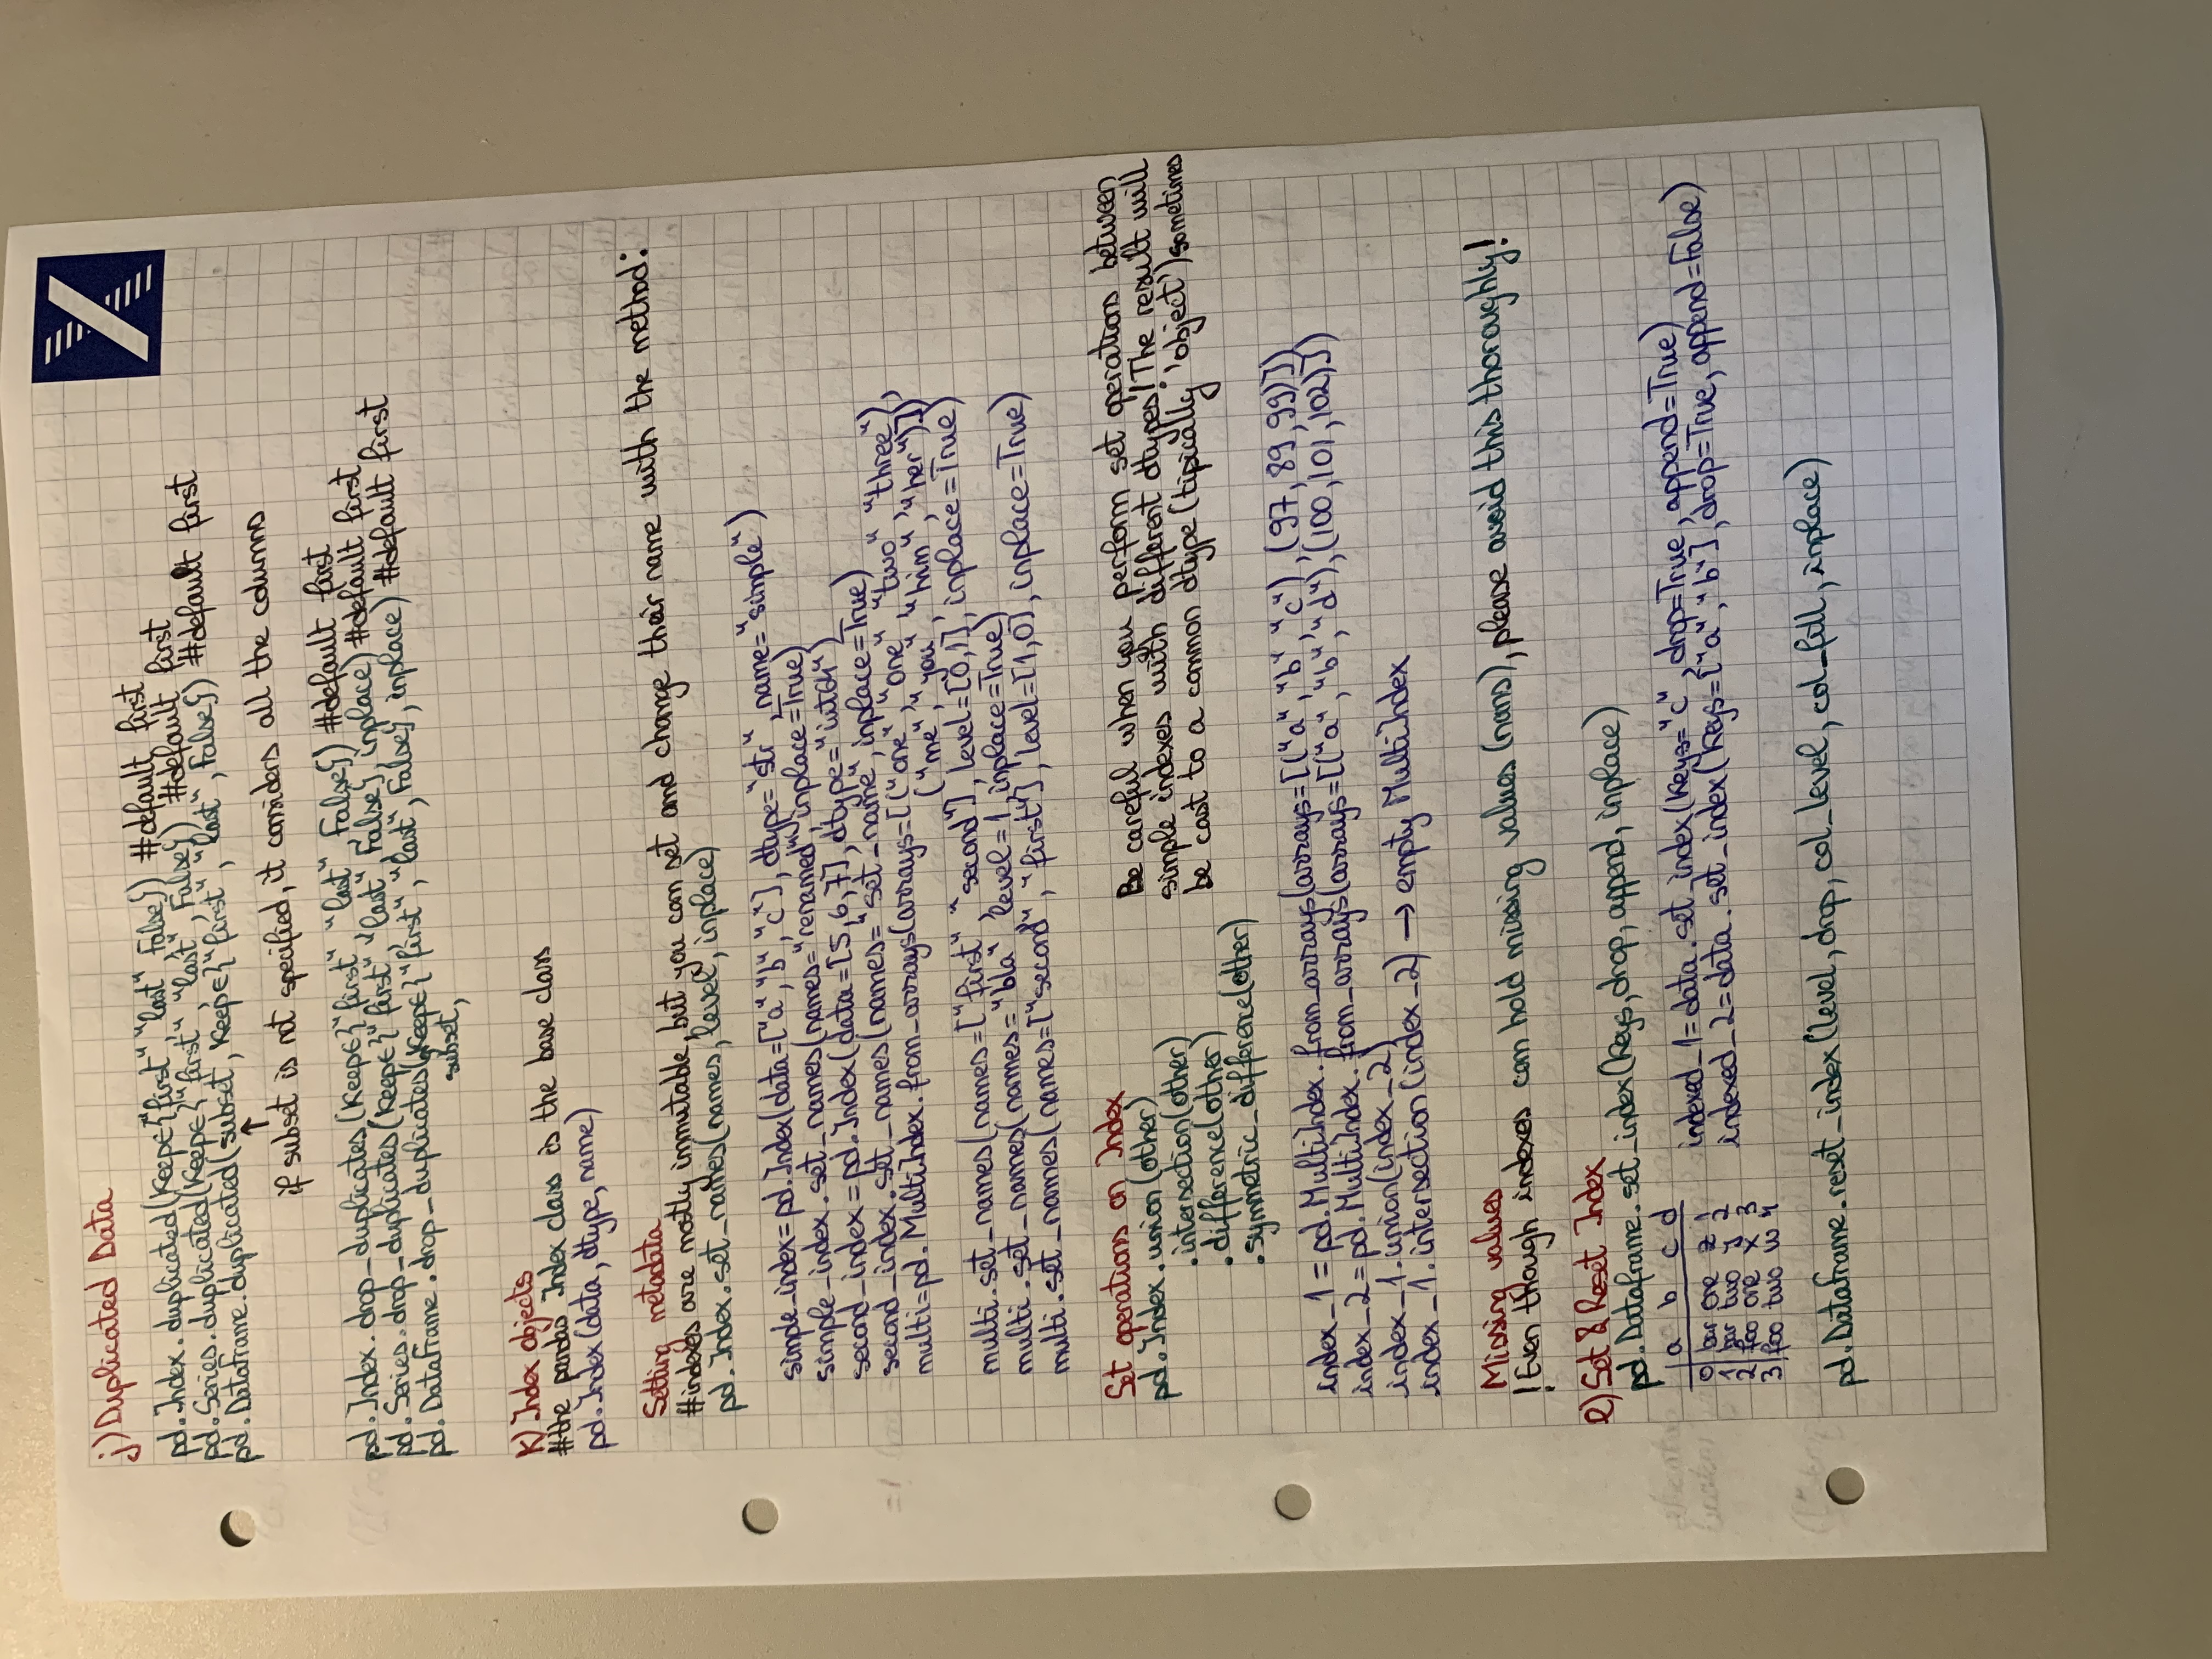 j) Duplicated Data
pd.Index.duplicated(Keep∈{"first", "last", False}) #default first
pd.Series.duplicated(Keep∈{"first", "last", False}) #default first
pd.DataFrame.duplicated(subset, Keep∈{"first", "last", False}) #default first
↑
if subset is not specified, it considers all the columns
pd.Index.drop_duplicates(Keep∈{"first", "last", False}) #default first
pd.Series.drop_duplicates(Keep∈{"first", "last", False}, inplace) #default first
pd.DataFrame.drop_duplicates(Keep∈{"first", "last", False}, inplace) #default first
subset,
K) Index objects
#the pandas Index class is the base class
pd.Index(data, dtype, name)
Setting metadata
#indexes are mostly immutable, but you can set and change their name with the method:
pd.Index.set_names(names, level, inplace)
simple_index=pd.Index(data=["a", "b", "c"], dtype="str", name="simple")
simple_index.set_names(names="renamed", inplace=True)
second_index=pd.Index(data=[5,6,7], dtype="int64")
second_index.set_names(names="set_name", inplace=True)
multi=pd.MultiIndex.from_arrays(arrays=[("one", "one", "two", "three"),
("me", "you", "him", "her")])
multi.set_names(names=["first", "second"], level=[0,1], inplace=True)
multi.set_names(names="bla", level=1, inplace=True)
multi.set_names(names=["second", "first"], level=[1,0], inplace=True)
Set operations on Index
pd.Index.union(other)
.intersection(other)
.difference(other)
.symmetric_difference(other)
Be careful when you perform set operations between
simple indexes with different dtypes! The result will
be cast to a common dtype (tipically 'object') sometimes
index_1=pd.MultiIndex.from_arrays(arrays=[("a", "b", "c"), (97, 89, 99)])
index_2=pd.MultiIndex.from_arrays(arrays=[("a", "b", "d"), (100, 101, 102)])
index_1.union(index_2)
index_1.intersection(index_2) → empty MultiIndex
Missing values
! Even though indexes can hold missing values (nans), please avoid this thoroughly!
l) Set & Reset Index
pd.Dataframe.set_index(Keys, drop, append, inplace)
a b c d
0 bar one z 1
1 bar two y 2
2 foo one x 3
3 foo two w 4
indexed_1=data.set_index(Keys="c", drop=True, append=True)
indexed_2=data.set_index(Keys=["a", "b"], drop=True, append=False)
pd.Dataframe.reset_index(level, drop, col_level, col_fill, inplace)